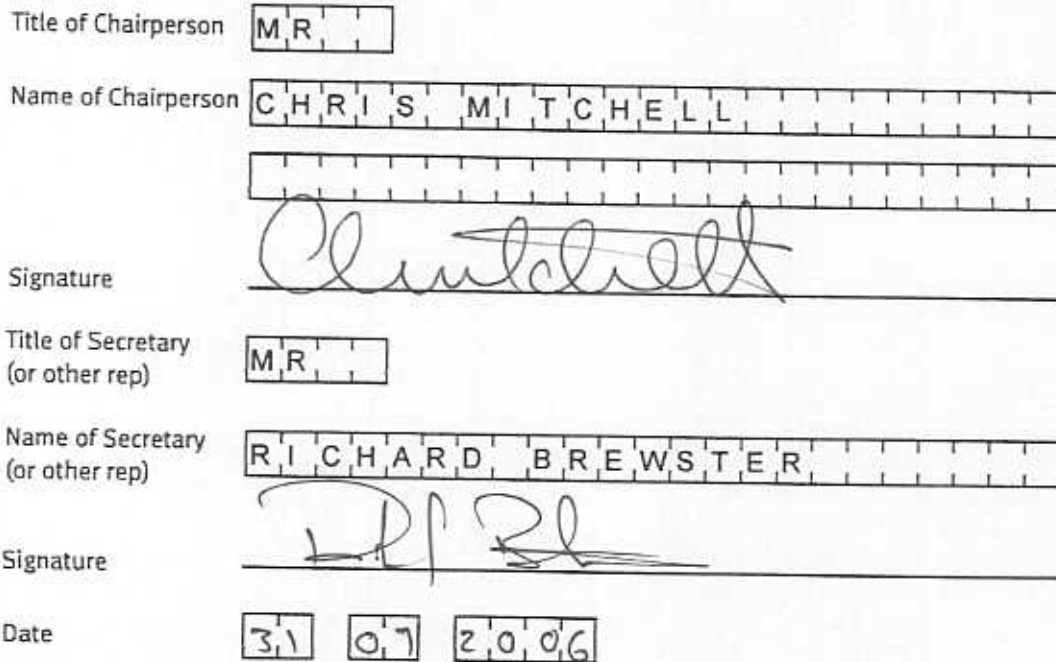 Title of Chairperson MR
Name of Chairperson CHRIS MITCHELL
Signature
Title of Secretary
(or other rep) MR
Name of Secretary
(or other rep) RICHARD BREWSTER
Signature
Date 31 07 2006